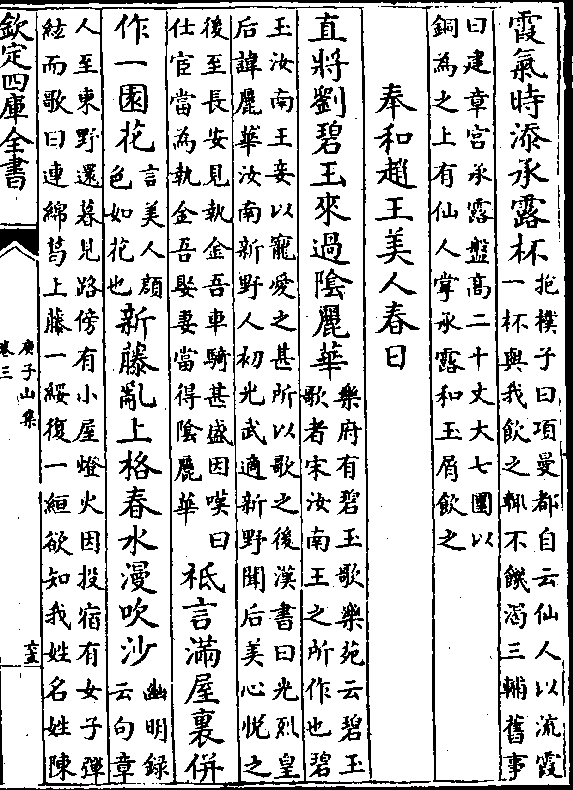 霞氣時添承露杯抱樸子曰項曼都自云仙人以流霞
一杯與我飲之輒不饑渴三輔舊事
曰建章宮承露盤高二十丈大七圍以
銅為之上有仙人掌承露和玉屑飲之
奉和趙王美人春日
直將劉碧玉來過陰麗華樂府有碧玉歌樂苑云碧玉
歌者宋汝南王之所作也碧
玉汝南王妾以寵愛之甚所以歌之後漢書曰光烈皇
后諱麗華汝南新野人初光武適新野聞后美心悅之
後至長安見執金吾車騎甚盛因嘆曰
仕宦當為執金吾娶妻當得陰麗華
祗言滿屋裏併
作一園花言美人顔
色如花也
新藤亂上格春水漫吹沙幽明錄
云句章
人至東野還暮見路傍有小屋燈火因投宿有女子彈
絃而歌曰連綿葛上藤一綏復一絙欲知我姓名姓陳
欽定四庫全書
庾子山集
卷三